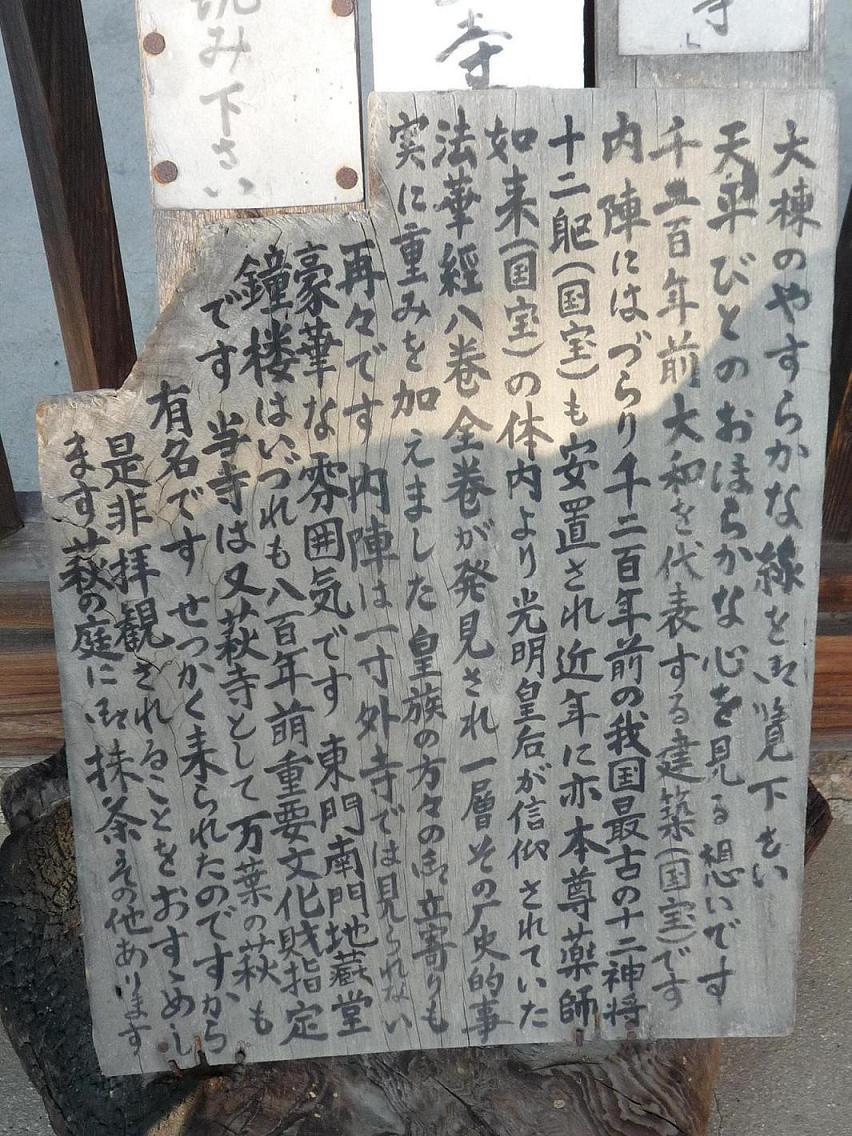 寺
寺
読み下さい
大棟のやすらかな線を御覧下さい
天平びとのおほらかな心を見る想いです
千二百年前大和を代表する建築(国宝)です
内陣にはづらり千二百年前の我国最古の十二神将
十二躯(国宝)も安置され近年に亦本尊薬師
如来(国宝)の体内より光明皇后が信仰されていた
法華經八巻全巻が発見され一層その歴史的事
実に重みを加えました 皇族の方々の御立寄りも
再々です 内陣は一寸外寺では見られない
豪華な雰囲気です 東門南門地蔵堂
鐘楼はいづれも八百年前重要文化財指定
です 当寺は又萩寺として万葉の萩も
有名です せっかく来られたのですから
是非拝観されることをおすゝめし
ます 萩の庭に御抹茶その他あります